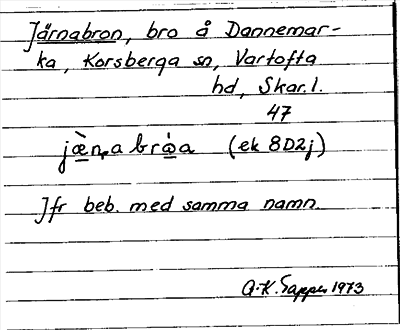 Järnabron, bro å Dannemar-
ka, Korsberga sn, Vartofta
hd, Skar. l.
47
jæ̀ṇa brá̱a (ek 8D2j)
Jfr beb. med samma namn.
A.-K. 1973